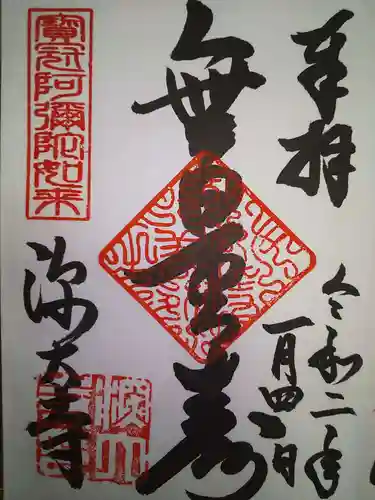 奉拝
令和二年
一月四日
無量壽
寶冠阿彌陀如来
深大寺